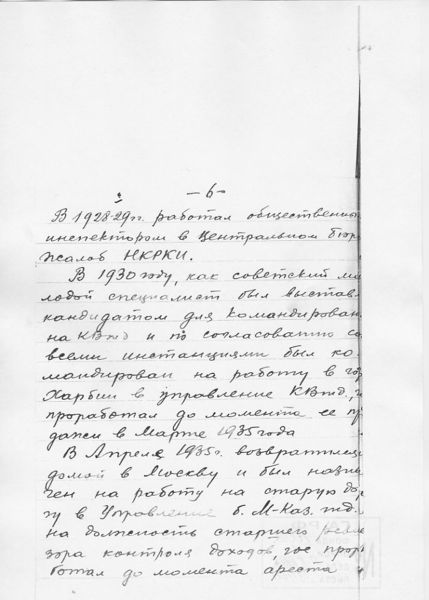 -6-
В 1928-29гг. работал общественны
инспектором в Центральном бюр
жалоб НКРКИ.
В 1930 году, как советский мо
лодой специалист был выстав
кандидатом для командирован
на КВжд и по согласованию со
всеми инстанциями был ко-
мандирован на работу в го
Харбин в управление КВжд,
проработал до момента ее пр
дажи в Марте 1935 года
В Апреле 1935г. возвратился
домой в Москву и был назна
чен на работу на старую до
гу в Управление б. М-Каз. жд.
на должность старшего реви
зора контроля доходов, где прор
ботал до момента ареста